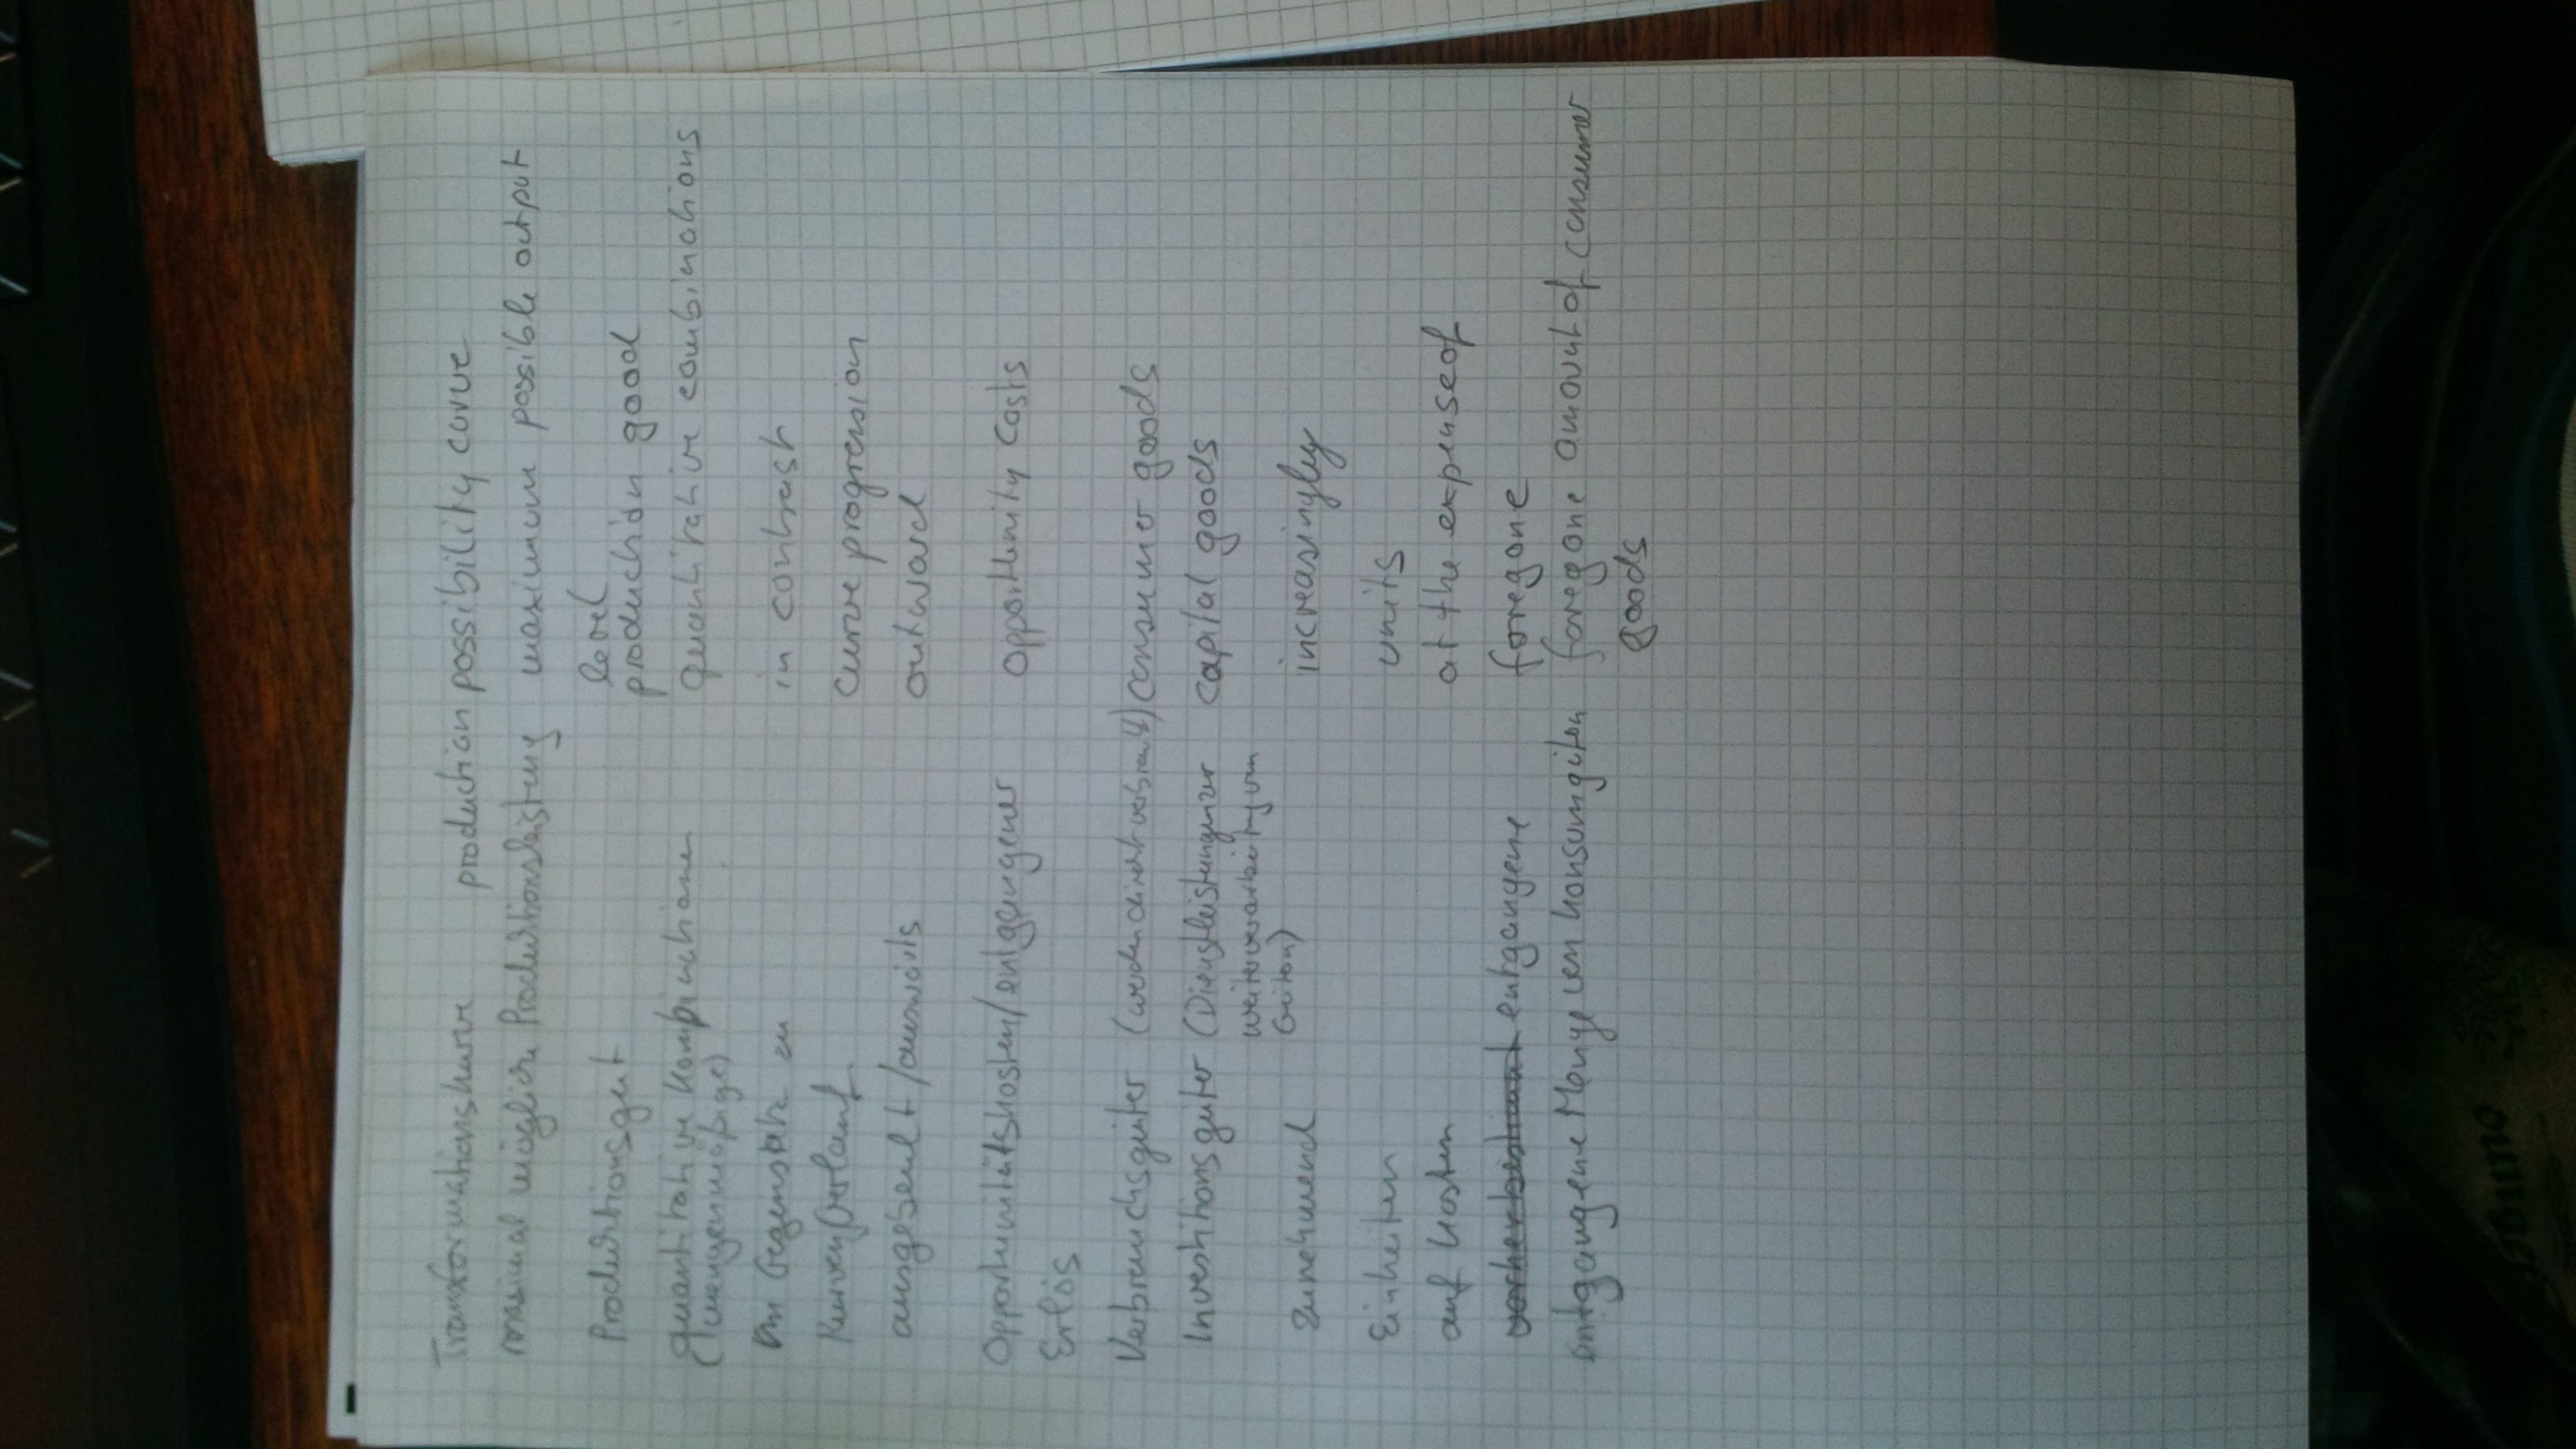 Transformationskurve production possibility curve
maximal mögliche Produktionsleistung maximum possible output
level
Produktionsgut production good
quantitative Kombinationen quantitative combinations
(mengenmäßige)
im Gegensatz zu in contrast
Kurvenverlauf curve progression
ausgebeult/auswärts outward
Opportunitätskosten/entgangener opportunity costs
Erlös
Verbrauchsgüter (werden direkt verbraucht) consumer goods
Investitionsgüter (Dienstleistungen zur capital goods
Weiterverarbeitung von
Gütern)
zunehmend increasingly
Einheiten units
auf Kosten at the expense of
entgangene foregone
entgangene Menge von Konsumgüter foregone amount of consumer
goods